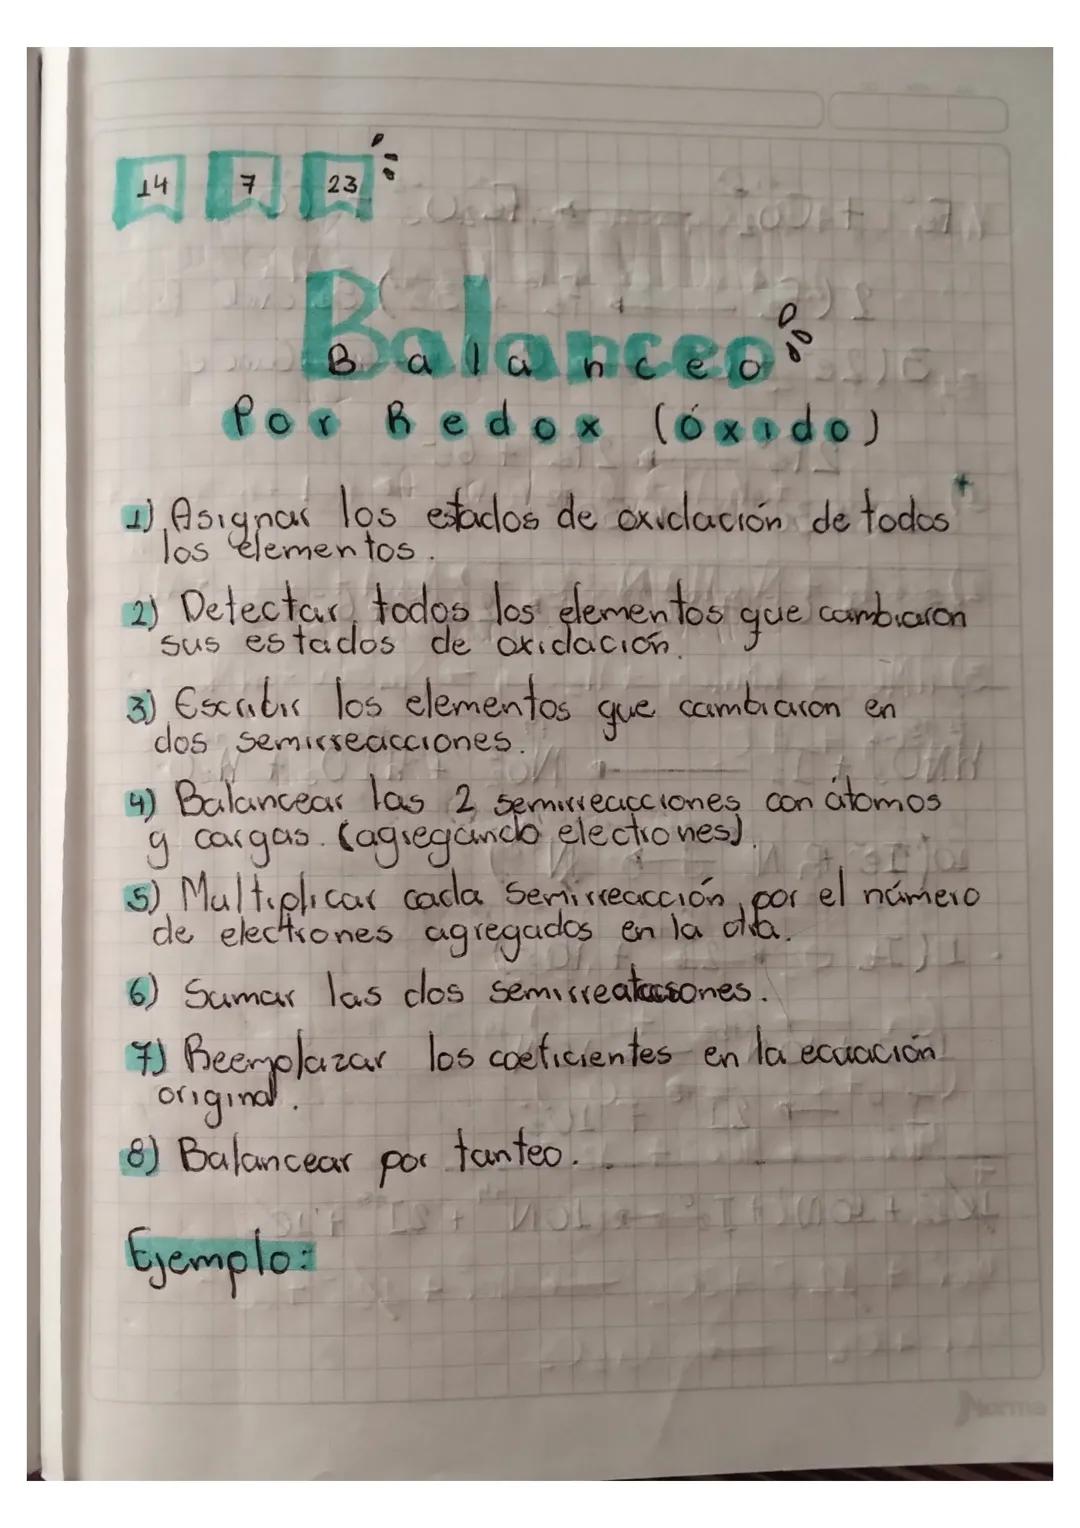 14 7 23
Balanceo
Balanceo
Por Redox (óxido)
1) Asignar los estados de oxidación de todos
los elementos.
2) Detectar todos los elementos que cambiaron
sus estados de oxidación.
3) Escribir los elementos que cambiaron en
dos semirreacciones.
4) Balancear las 2 semirreacciones con átomos
y cargas. (agregando electrones).
5) Multiplicar cada semirreacción por el número
de electrones agregados en la otra.
6) Sumar las dos
7) Reemplazar los coeficientes en la ecuación
original.
8) Balancear por tanteo.
Ejemplo:
Norma